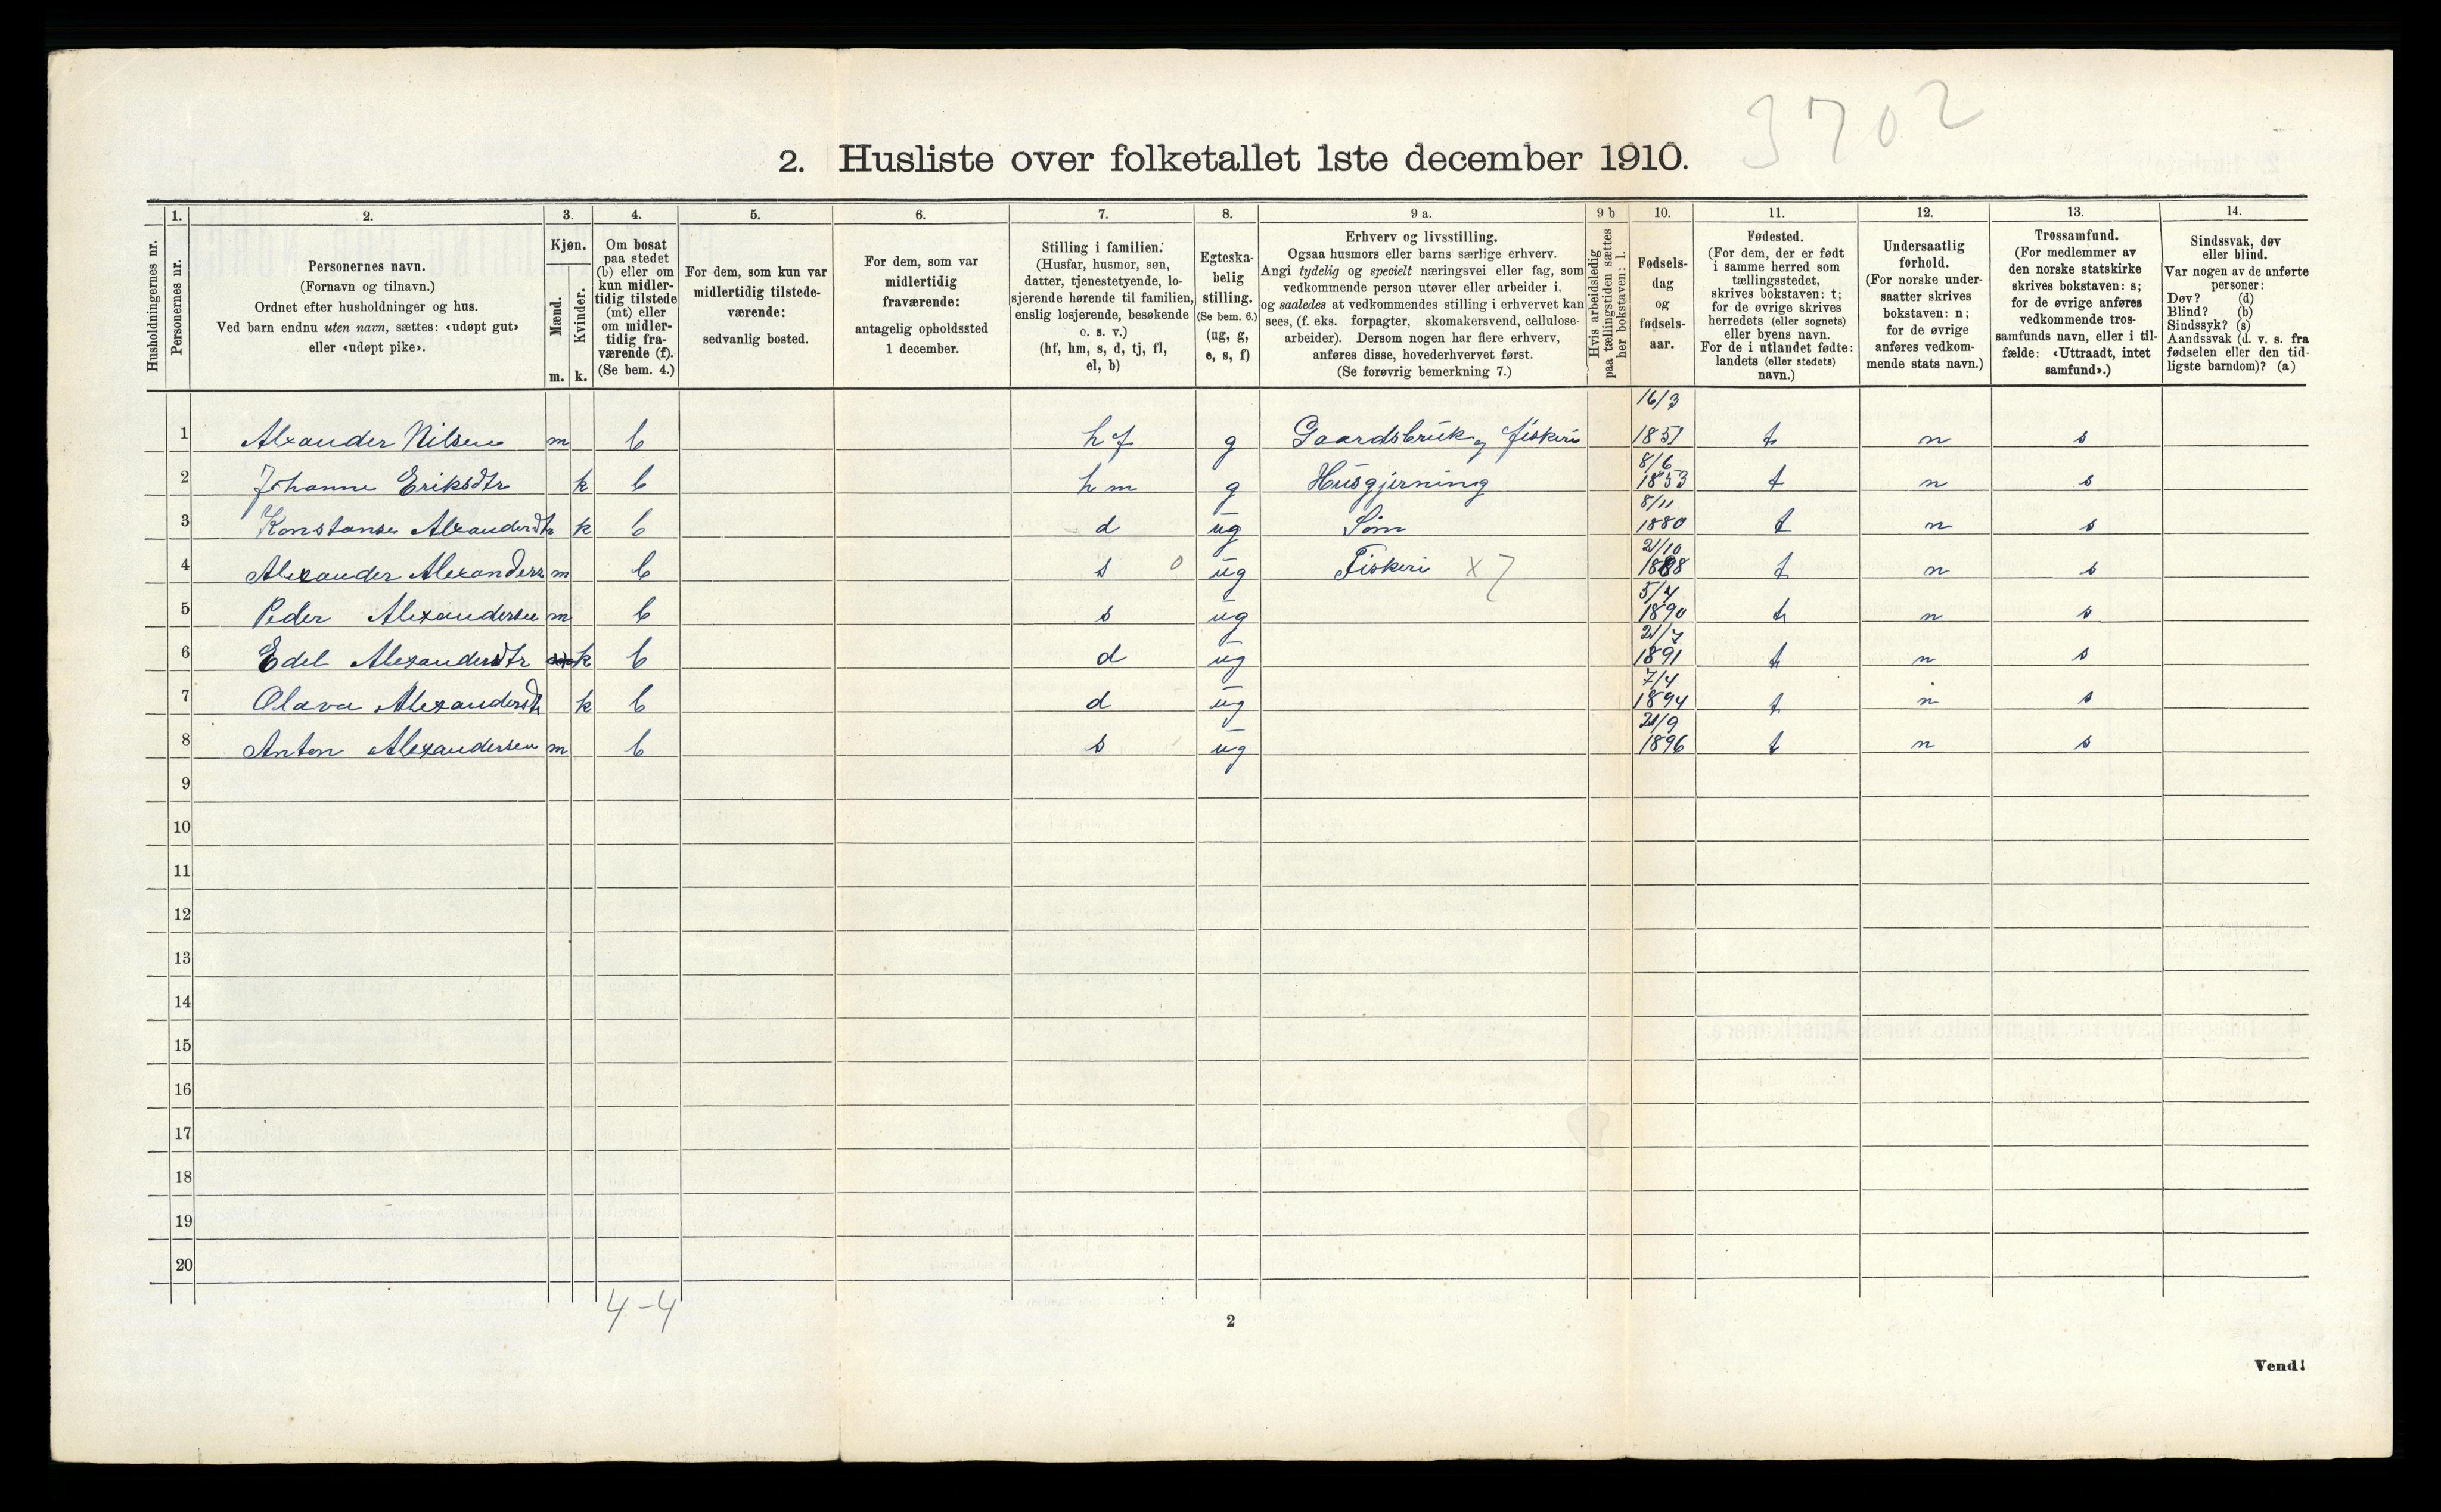 3702
2. Husliste over folketallet 1ste december 1910.
Husholdningernes nr.
1. Personernes nr.
2. Personernes navn.
(Fornavn og tilnavn.)
Ordnet efter husholdninger og hus.
Ved barn endnu uten navn, sættes: «udøpt gut»
eller «udøpt pike».
3. Kjøn.
Mænd. m.
Kvinder. k.
4. Om bosat
paa stedet
(b) eller om
kun midler-
tidig tilstede
(mt) eller
om midler-
tidig fra-
værende (f).
(Se bem. 4.)
5. For dem, som kun var
midlertidig tilstede-
værende:
sedvanlig bosted.
6. For dem, som var
midlertidig
fraværende:
antagelig opholdssted
1 december.
7. Stilling i familien.
(Husfar, husmor, søn,
datter, tjenestetyende, lo-
sjerende hørende til familien,
enslig losjerende, besøkende
o. s. v.)
(hf, hm, s, d, tj, fl,
el, b)
8. Egteska-
belig
stilling.
(Se bem. 6.)
(ug, g,
e, s, f)
9 a. Erhverv og livsstilling.
Ogsaa husmors eller barns særlige erhverv.
Angi tydelig og specielt næringsvei eller fag, som
vedkommende person utøver eller arbeider i,
og saaledes at vedkommendes stilling i erhvervet kan
sees, (f. eks. forpagter, skomakersvend, cellulose-
arbeider). Dersom nogen har flere erhverv,
anføres disse, hovederhvervet først.
(Se forøvrig bemerkning 7.)
9 b Hvis arbeidsledig
paa tællingstiden sættes
her bokstaven: l.
10. Fødsels-
dag
og
fødsels-
aar.
11. Fødested.
(For dem, der er født
i samme herred som
tællingsstedet,
skrives bokstaven: t;
for de øvrige skrives
herredets (eller sognets)
eller byens navn.
For de i utlandet fødte:
landets (eller stedets)
navn.)
12. Undersaatlig
forhold.
(For norske under-
saatter skrives
bokstaven: n;
for de øvrige
anføres vedkom-
mende stats navn.)
13. Trossamfund.
(For medlemmer av
den norske statskirke
skrives bokstaven: s;
for de øvrige anføres
vedkommende tros-
samfunds navn, eller i til-
fælde: «Uttraadt, intet
samfund».)
14. Sindssvak, døv
eller blind.
Var nogen av de anførte
personer:
Døv? (d)
Blind? (b)
Sindssyk? (s)
Aandssvak (d. v. s. fra
fødselen eller den tid-
ligste barndom)? (a)
1 Alxander Nilsen m b hf g Gaardsbruk og fiskeri 16/3 1851 t n s
2 Johanne Eriksdtr k b hm g Husgjerning 8/6 1853 t n s
3 Konstanse Alexanderdtr k b d ug Søm 8/11 1880 t n s
4 Alexander Alexanders m b s 0 ug Fiskeri x 7 21/10 1888 t n s
5 Peder Alexandersen m b s ug 5/4 1890 t n s
6 Edel Alexandersdtr k b d ug 21/7 1891 t n s
7 Olava Alexandersdtr k b d ug 7/4 1894 t n s
8 Anton Alexandersen m b s ug 21/9 1896 t n s
9
10
11
12
13
14
15
16
17
18
19
20
4-4
2
Vend!